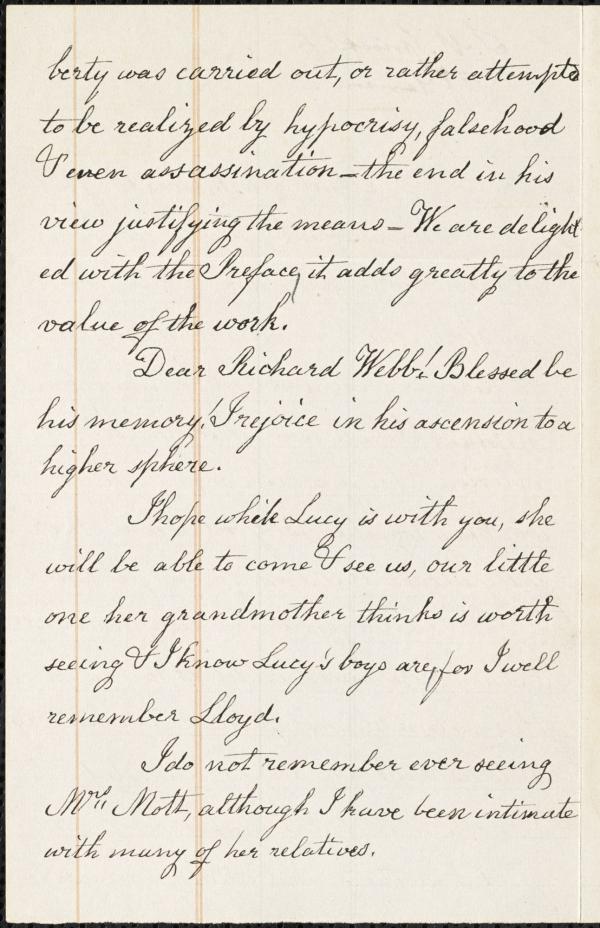 berty was carried out, or rather attempted
to be realized by hypocrisy, falsehood
& even assassination - the end in his
view justifying the means - We are delight
ed with the Preface, it adds greatly to the
value of the work.
Dear Richard Webb! Blessed be
his memory! I rejoice in his ascension to a
higher sphere.
I hope while Lucy is with you, she
will be able to come & see us, our little
one her grandmother thinks is worth
seeing & I know Lucy's boys are, for I well
remember Lloyd.
I do not remember ever seeing
Mrs. Mott, although I have been intimate
with many of her relatives.